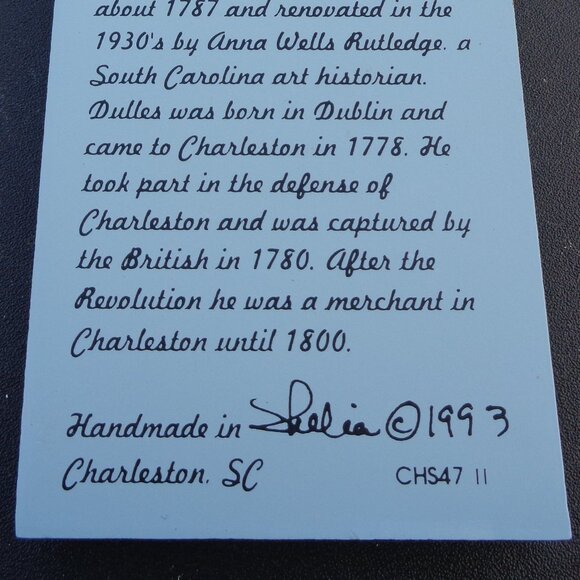 about 1787 and renovated in the
1930's by Anna Wells Rutledge, a
South Carolina art historian.
Dulles was born in Dublin and
came to Charleston in 1778. He
took part in the defense of
Charleston and was captured by
the British in 1780. After the
Revolution he was a merchant in
Charleston until 1800.
Handmade in Shelia ©1993
Charleston, SC CHS47 II